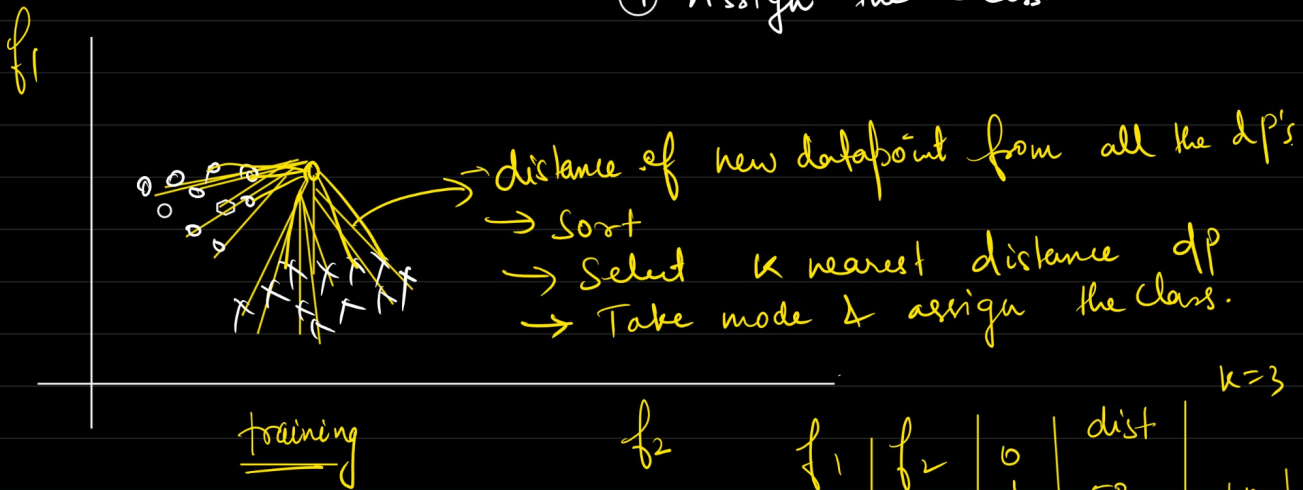 f1
① Assign the
→ distance of new datapoint from all the dp's
→ Sort
→ Select K nearest distance dp
→ Take mode & assign the class.
K=3
training
f2
f1 | f2 | 0 | dist |